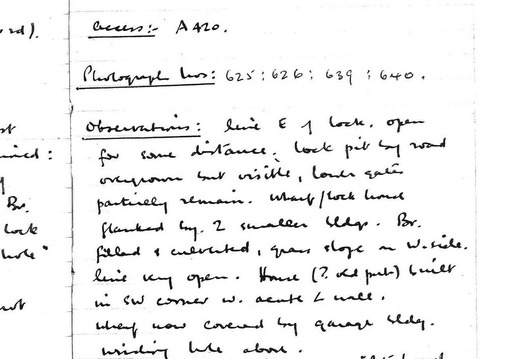 rd).
Access:- A420.
Photograph Nos: 625 : 626 : 639 : 640.
st
Observations: line E of lock. open
for some distance. Lock pit by road
overgrown but visible, lower gates
partially remain. Wharf/lock house
flanked by 2 smaller bldgs. Br.
filled & culverted, grass slope on W. side.
line very open. House (? old pub) built
in SW corner w. acute ∠ wall.
wharf now covered by garage bldg.
winding hole above.
ined:
Br.
lock
hole"
not